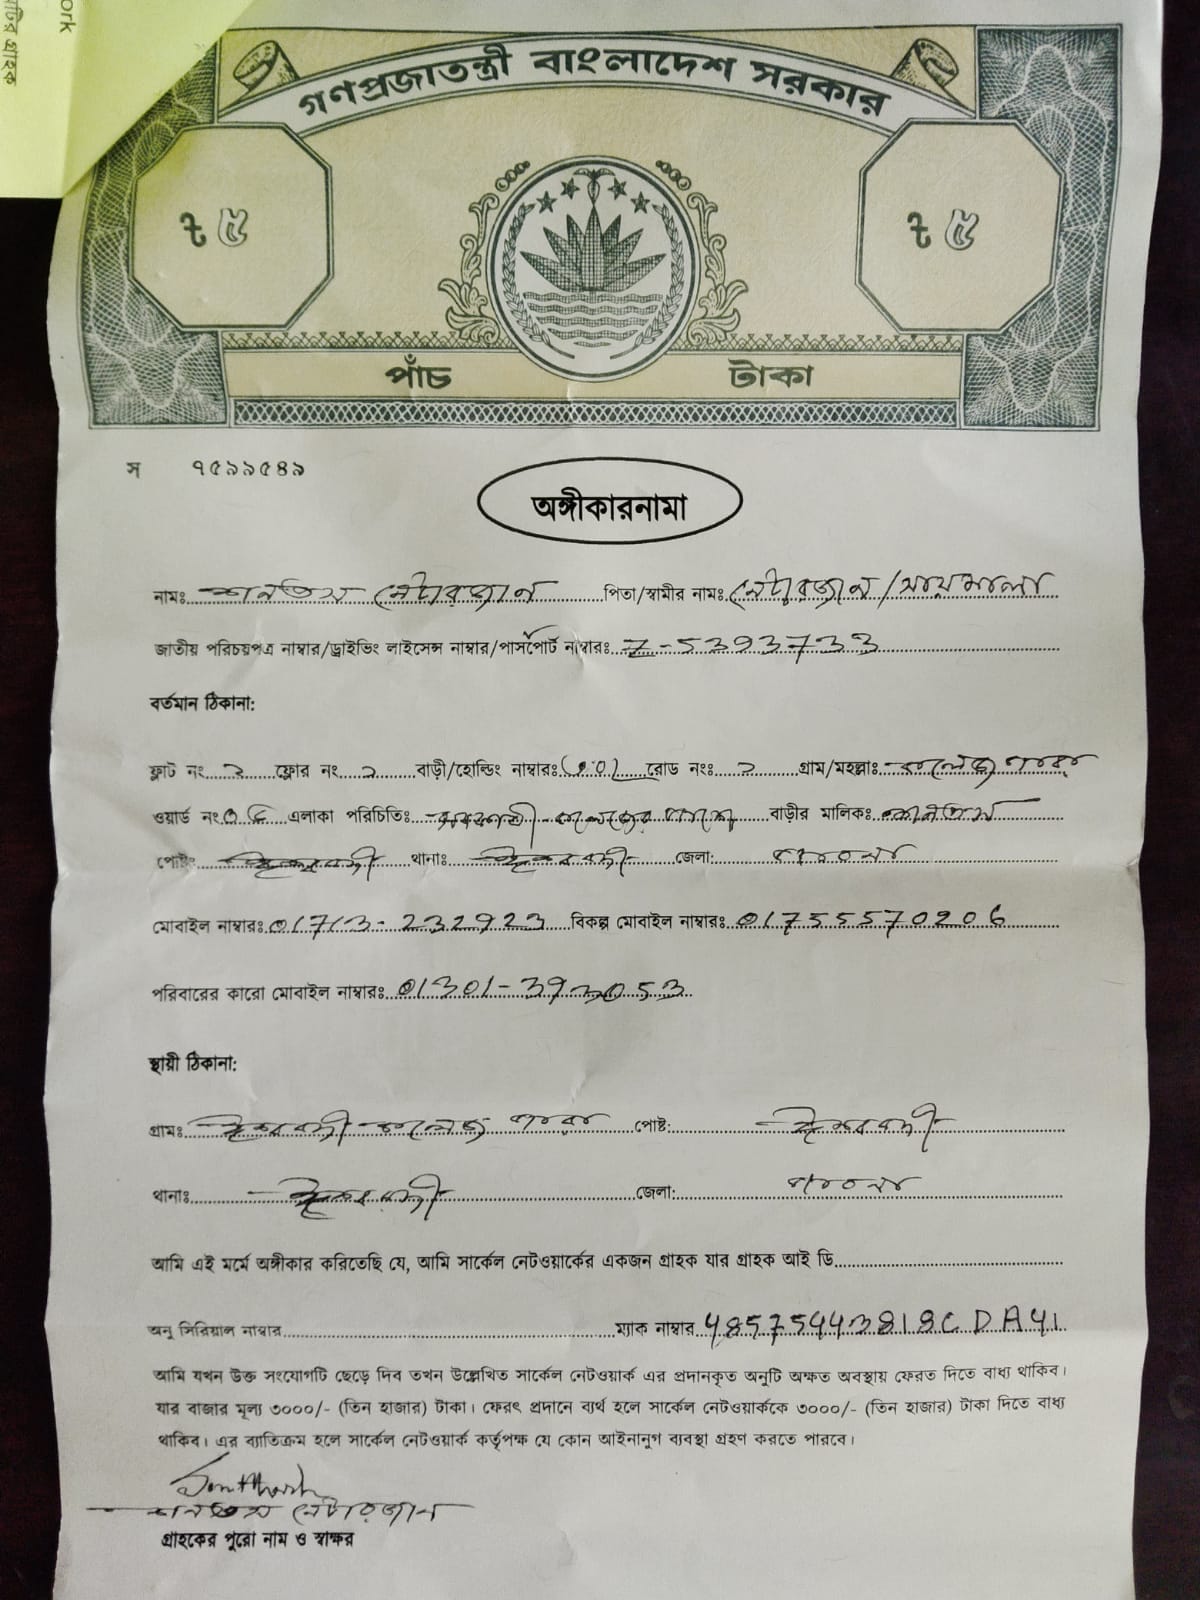 ork
টির গ্রাহক
গণপ্রজাতন্ত্রী বাংলাদেশ সরকার
ট ৫ ট ৫
পাঁচ টাকা
স ৭৫৯৯৫৪৯
অঙ্গীকারনামা
নামঃ পিতা/স্বামীর নামঃ
জাতীয় পরিচয়পত্র নাম্বার/ড্রাইভিং লাইসেন্স নাম্বার/পাসপোর্ট নাম্বারঃ 7-5393733
বর্তমান ঠিকানা:
ফ্লাট নং ২ ফ্লোর নং ২ বাড়ী/হোল্ডিং নাম্বারঃ রোড নংঃ ২ গ্রাম/মহল্লাঃ কলেজ পাড়া
ওয়ার্ড নং এলাকা পরিচিতিঃ বাড়ীর মালিকঃ
পোষ্টঃ ঈশ্বরদী থানাঃ ঈশ্বরদী জেলা: পাবনা
মোবাইল নাম্বারঃ 01713-232923 বিকল্প মোবাইল নাম্বারঃ 01755570206
পরিবারের কারো মোবাইল নাম্বারঃ 01301-393053
স্থায়ী ঠিকানা:
গ্রামঃ ঈশ্বরদী কলেজ পাড়া পোষ্ট: ঈশ্বরদী
থানাঃ ঈশ্বরদী জেলা: পাবনা
আমি এই মর্মে অঙ্গীকার করিতেছি যে, আমি সার্কেল নেটওয়ার্কের একজন গ্রাহক যার গ্রাহক আই ডি
অনু সিরিয়াল নাম্বার ম্যাক নাম্বার 48575443818CDA41
আমি যখন উক্ত সংযোগটি ছেড়ে দিব তখন উল্লেখিত সার্কেল নেটওয়ার্ক এর প্রদানকৃত অনুটি অক্ষত অবস্থায় ফেরত দিতে বাধ্য থাকিব।
যার বাজার মূল্য ৩০০০/- (তিন হাজার) টাকা। ফেরৎ প্রদানে ব্যর্থ হলে সার্কেল নেটওয়ার্ককে ৩০০০/- (তিন হাজার) টাকা দিতে বাধ্য
থাকিব। এর ব্যতিক্রম হলে সার্কেল নেটওয়ার্ক কর্তৃপক্ষ যে কোন আইনানুগ ব্যবস্থা গ্রহণ করতে পারবে।
গ্রাহকের পুরো নাম ও স্বাক্ষর